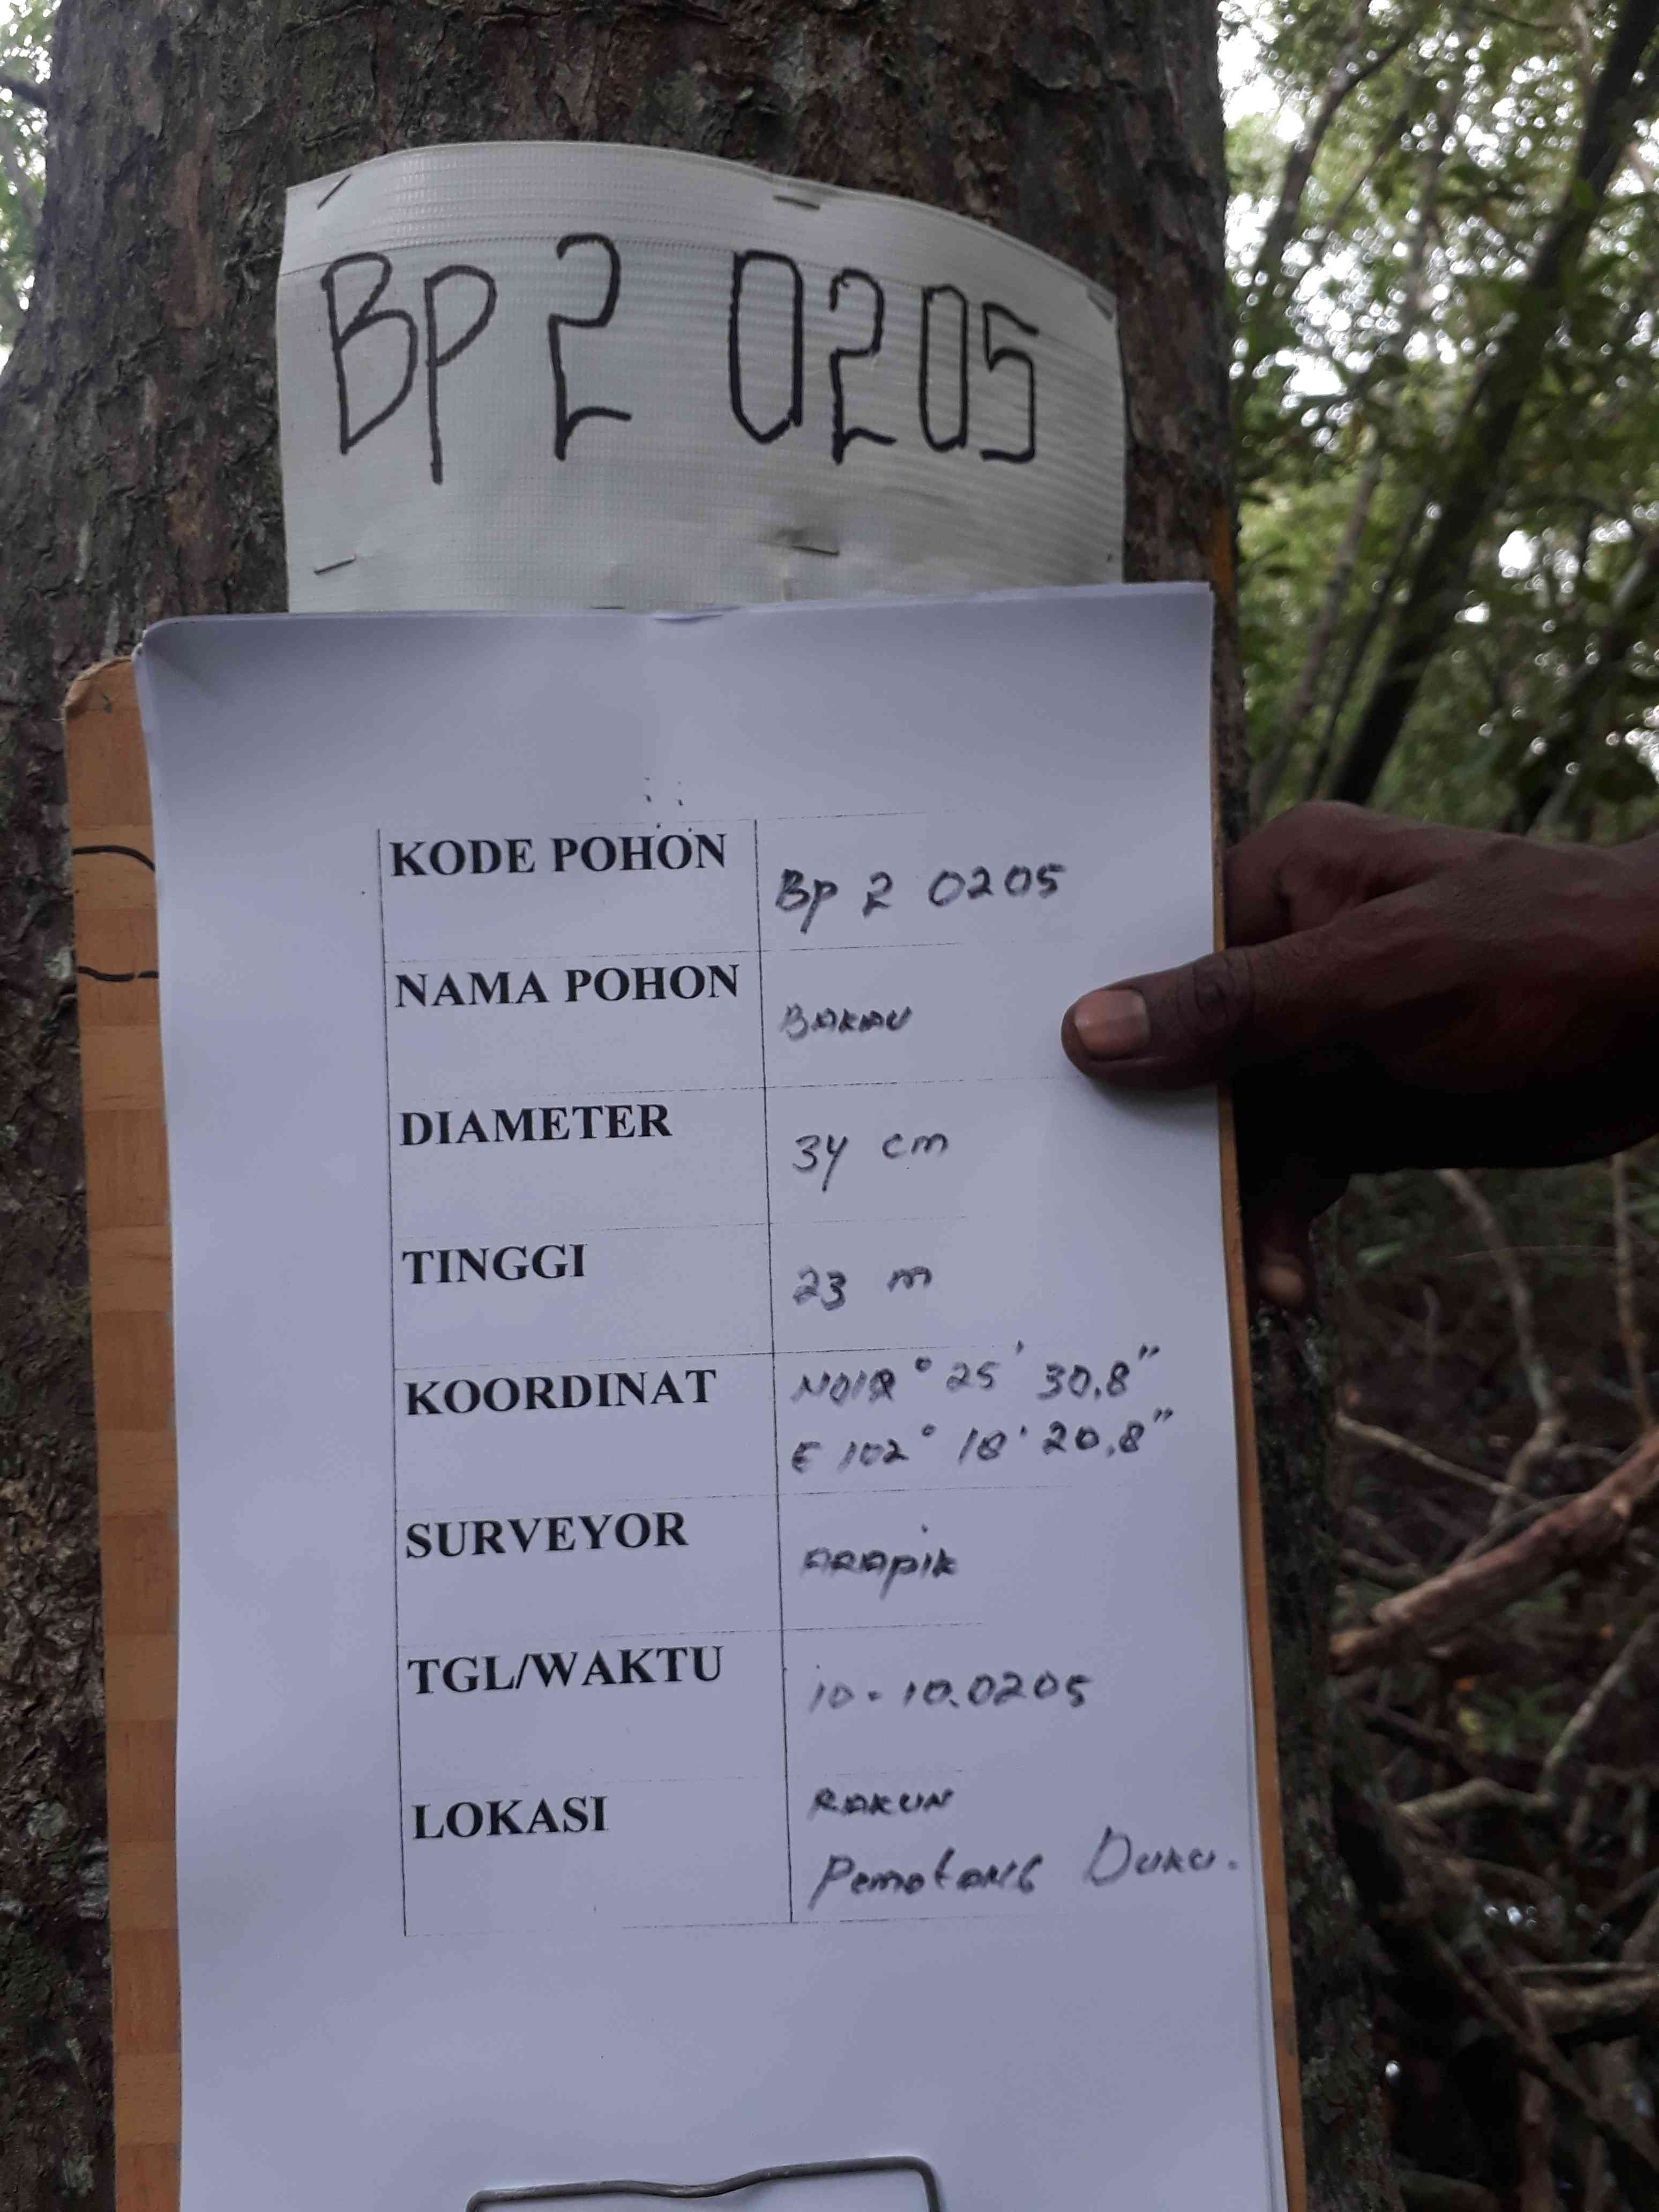 BP 2 0205
KODE POHON Bp 2 0205
NAMA POHON BAKAU
DIAMETER 34 cm
TINGGI 23 m
KOORDINAT ° 25' 30,8"
E 102° 18' 20,8"
SURVEYOR ARAPIK
TGL/WAKTU 10-10.0205
LOKASI RAKUN
Pematang Duku.